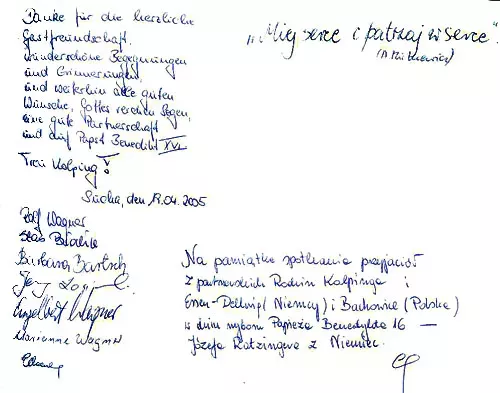 Danke für die herzliche
Gastfreundschaft,
wunderschöne Begegnungen
und Erinnerungen,
und weiterhin alle guten
Wünsche, Gottes reichen Segen,
eine gute Partnerschaft
und auf Papst Benedikt XVI.
Treu Kolping!
Sucha, den 19.04.2005
"Miej serce i patrzaj w serce".
(A. Mickiewicz)
Rolf Wagner
Barbara Bartsch
Engelbert Wagner
Marianne Wagner
Na pamiątkę spotkania przyjaciół
z partnerskich Rodzin Kolpinga
Essen-Dellwig (Niemcy) i Bachowice (Polska)
w dniu wyboru Papieża Benedykta 16 —
Józefa Ratzingera z Niemiec.